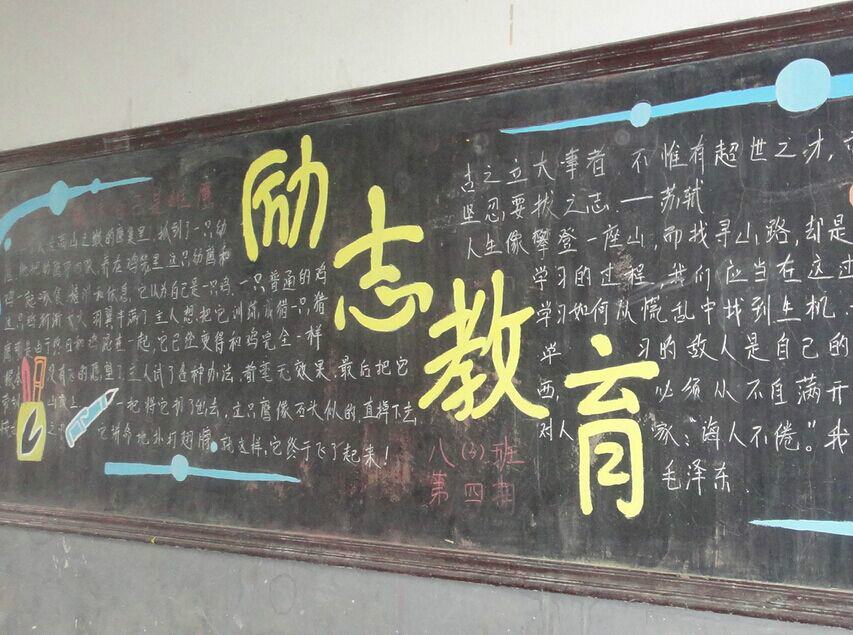 励志教育
是雄鹰
山上的鹰巢里,抓到了一只幼
养在鸡笼里这只幼鹰和
鸡一起啄食、嬉闹和休息,它认为自己是一只鸡.一只普通的鸡
这只鹰渐渐长大,羽翼丰满了主人想把它训练成猎一只猎
鹰可是由于终日和鸡混在一起,它已经变得和鸡完全一样
根本没有飞的愿望了主人试了各种办法,都毫无效果.最后把它
带到山顶上一把将它扔了出去,这只鹰像石头似的,直掉下去
它拼命地扑打翅膀,就这样,它终于飞了起来!
八(3)班
第四期
古之立大事者 不惟有超世之才,
坚忍要拔之志.—苏轼
人生像攀登一座山,而找寻山路,却是
学习的过程,我们应当在这过
学习如何从慌乱中找到生机.
学习的敌人是自己的
西,必须从不自满开
对人家:“诲人不倦。”我
毛泽东.